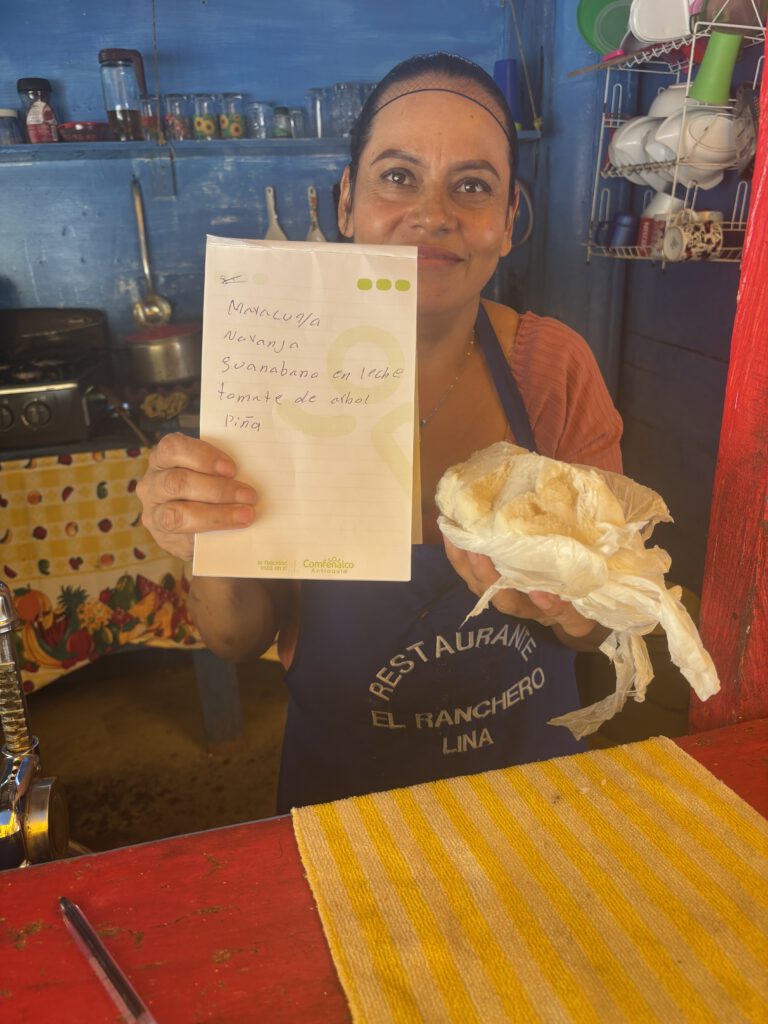 Maracuya
Naranja
guanabana en leche
tomate de arbol
Piña
Comfenalco
Antioquia
RESTAURANTE
EL RANCHERO
LINA